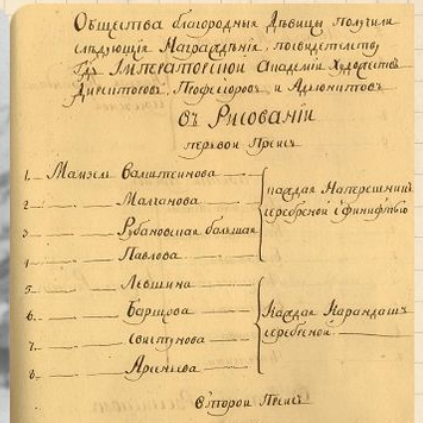 Общества благородныя Дѣвицы получили
слѣдующiя Награжденiя, посвидетельству
Гдъ ИМПЕРАТОРСКОЙ Академiи Художествъ
Директоровъ, Професоровъ, и Адюнктовъ
Въ Рисованiи
первой Преисъ
1. Мамзель Валштеинова
2 Малганова
3 Рубановская большая
4 Павлова
каждая
серебреной сфинифтью
5. Левшина
6. Барщова
7. Свистунова
8 Арсеньева
Каждая Карандашъ
серебреной
Второй Преисъ